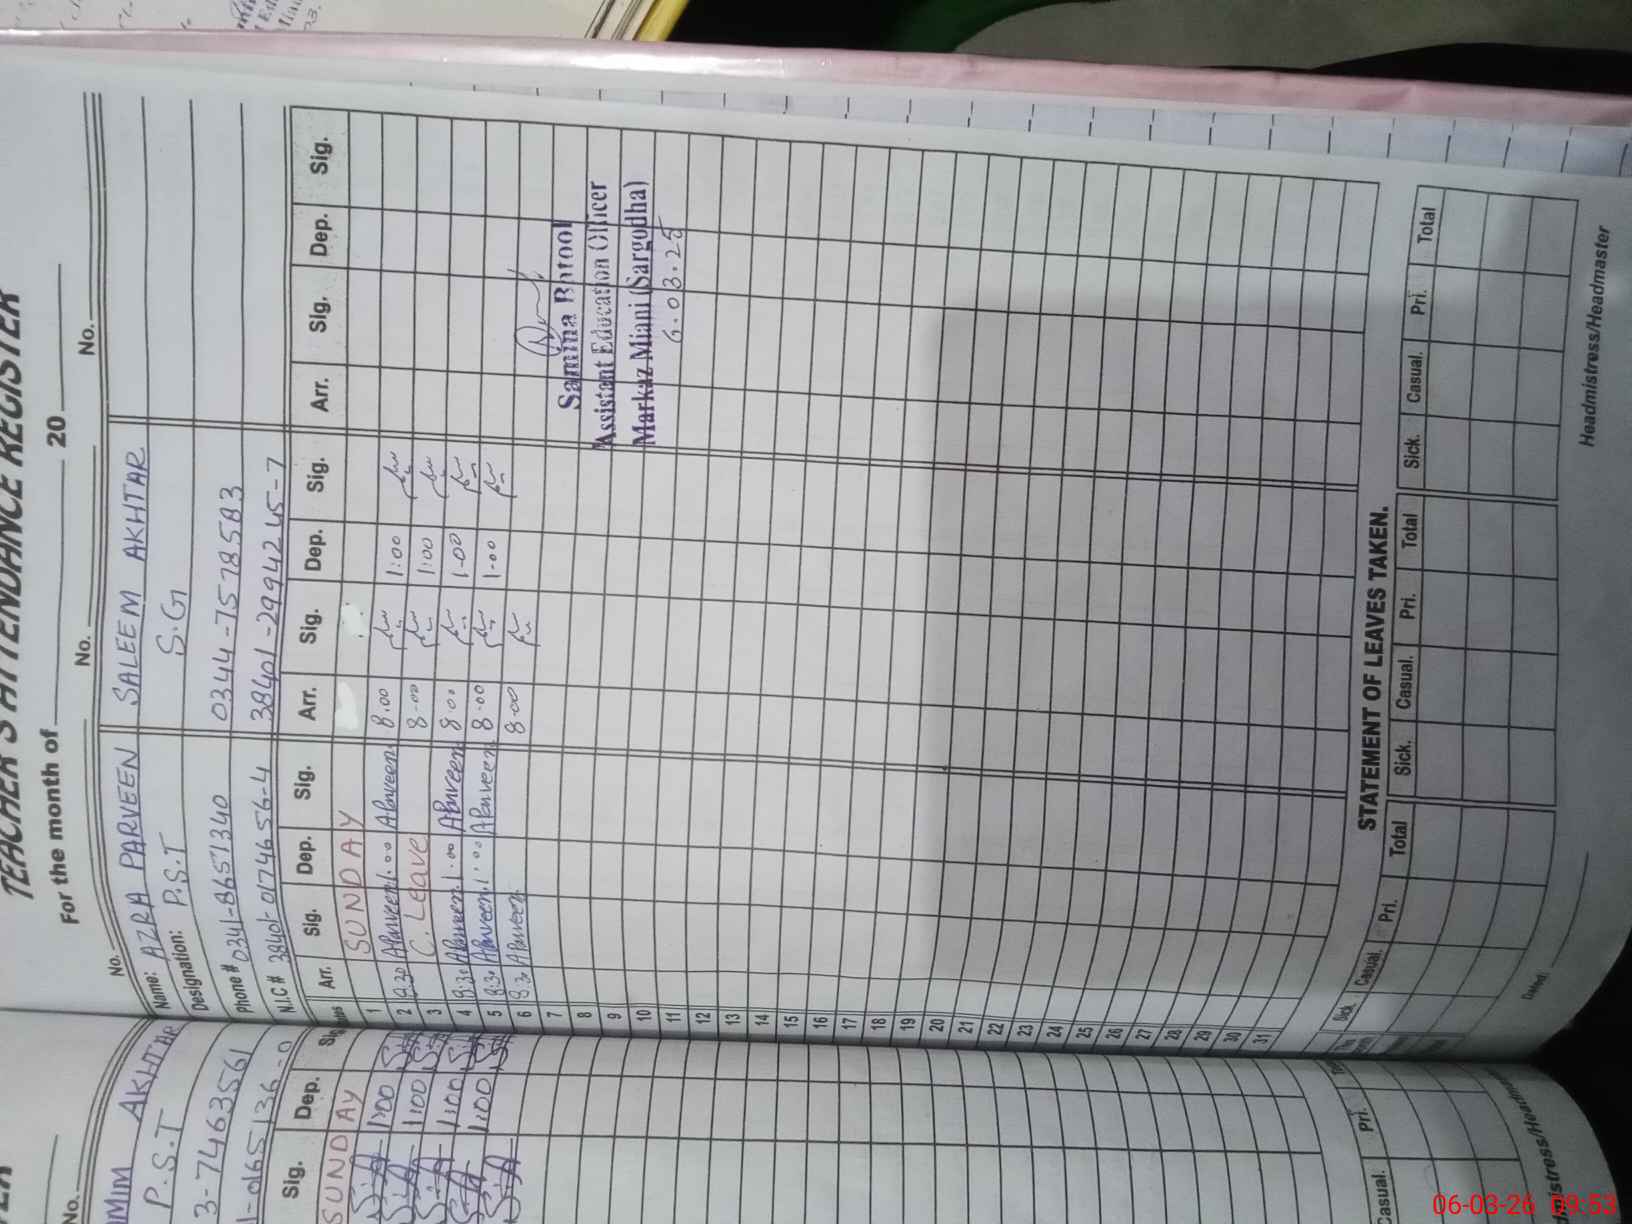 TEACHER'S ATTENDANCE REGISTER
For the month of 20
No. No. No.
Name: AZRA PARVEEN SALEEM AKHTAR
Designation: P.S.T S.G
Phone # 0341-8651340 0344-7578583
N.I.C # 38401-0174656-4 38401-2994245-7
Arr. Sig. Dep. Sig. Arr. Sig. Dep. Sig. Arr. Sig. Dep. Sig.
1 SUNDAY
2 8.30 AParveen 1.00 AParveen 8.00 1:00
3 C. Leave 8-00 1:00
4 8.30 AParveen 1.00 AParveen 8.00 1-00
5 8.30 AParveen 1.00 AParveen 8.00 1.00
6 8.30 AParveen 8.00
7
8
9
10
11
12
13
14
15
16
17
18
19
20
21
22
23
24
25
26
27
28
29
30
31
Samina Batool
Assistant Education Officer
Markaz Miani (Sargodha)
6.03.25
STATEMENT OF LEAVES TAKEN.
Sick. Casual. Pri. Total Sick. Casual. Pri. Total Sick. Casual. Pri. Total
Dated:
Headmistress/Headmaster
No.
AKHTAR
P.S.T
3-7463561
-0165136-0
Sig. Dep.
SUNDAY
1:00
1:00
1:00
1:00
Casual. Pri.
06-03-26 09:53